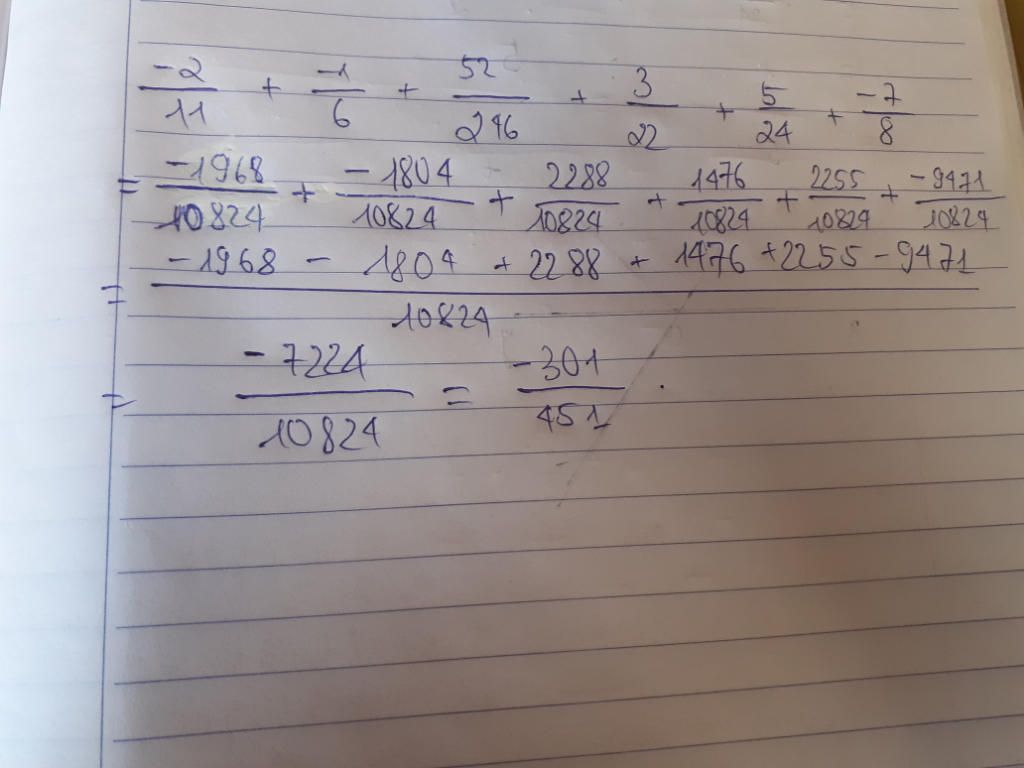 -2/11 + -1/6 + 52/246 + 3/22 + 5/24 + -7/8
= -1968/10824 + -1804/10824 + 2288/10824 + 1476/10824 + 2255/10824 + -9471/10824
= -1968 - 1804 + 2288 + 1476 + 2255 - 9471 / 10824
= -7224/10824 = -301/451 .